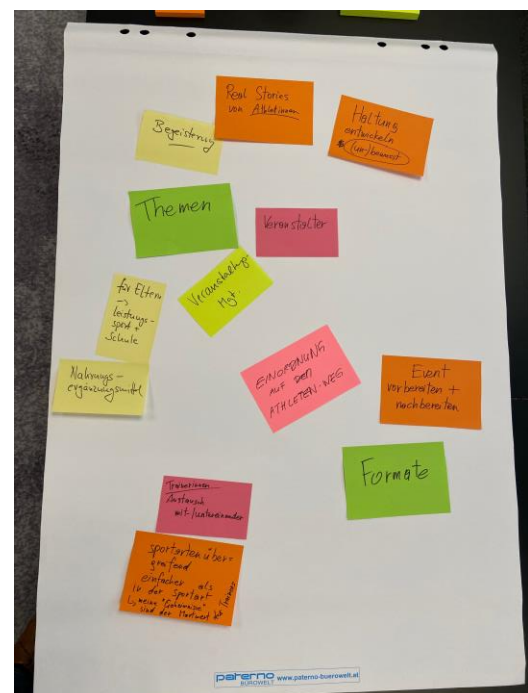 Real Stories
von Athletinnen
Begeisterung
Haltung
entwickeln
(un-)bewusst
Themen
Veranstalter
Veranstaltungs-
Mgt.
für Eltern
→
Leistungs-
sport +
Schule
Nahrungs-
ergänzungsmittel
EINORDNUNG
AUF DEN
ATHLETEN-WEG
Event
vorbereiten +
nachbereiten
Formate
Trainerinnen
Austausch
mit-/untereinander
sportartenüber-
greifend
einfacher als
in der Sportart
"Geheimnisse"
und der Marktwert der Trainer
paterno
BÜROWELT
www.paterno-buerowelt.at